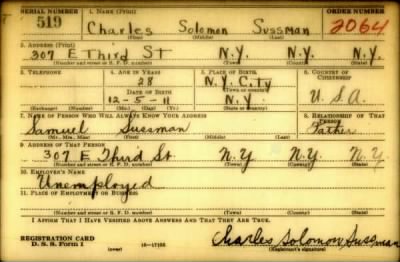 SERIAL NUMBER 1. NAME (Print) ORDER NUMBER
519 Charles Solomon Sussman 2064
(First) (Middle) (Last)
2. ADDRESS (Print)
307 E Third St N.Y. N.Y. N.Y.
(Number and street or R. F. D. number) (Town) (County) (State)
3. TELEPHONE 4. AGE IN YEARS 5. PLACE OF BIRTH 6. COUNTRY OF CITIZENSHIP
28 N.Y. City
DATE OF BIRTH (Town or county)
12-5-11 N.Y U.S.A.
(Exchange) (Number) (Mo.) (Day) (Yr.) (State or country)
7. NAME OF PERSON WHO WILL ALWAYS KNOW YOUR ADDRESS 8. RELATIONSHIP OF THAT PERSON
Samuel Sussman Father
(Mr., Mrs., Miss) (First) (Middle) (Last)
9. ADDRESS OF THAT PERSON
307 E Third St. N.Y N.Y. N.Y
(Number and street or R. F. D. number) (Town) (County) (State)
10. EMPLOYER'S NAME
Unemployed
11. PLACE OF EMPLOYMENT OR BUSINESS
(Number and street or R. F. D. number) (Town) (County) (State)
I AFFIRM THAT I HAVE VERIFIED ABOVE ANSWERS AND THAT THEY ARE TRUE.
REGISTRATION CARD
D. S. S. Form 1 (over) Charles Solomon Sussman
(Registrant's signature)